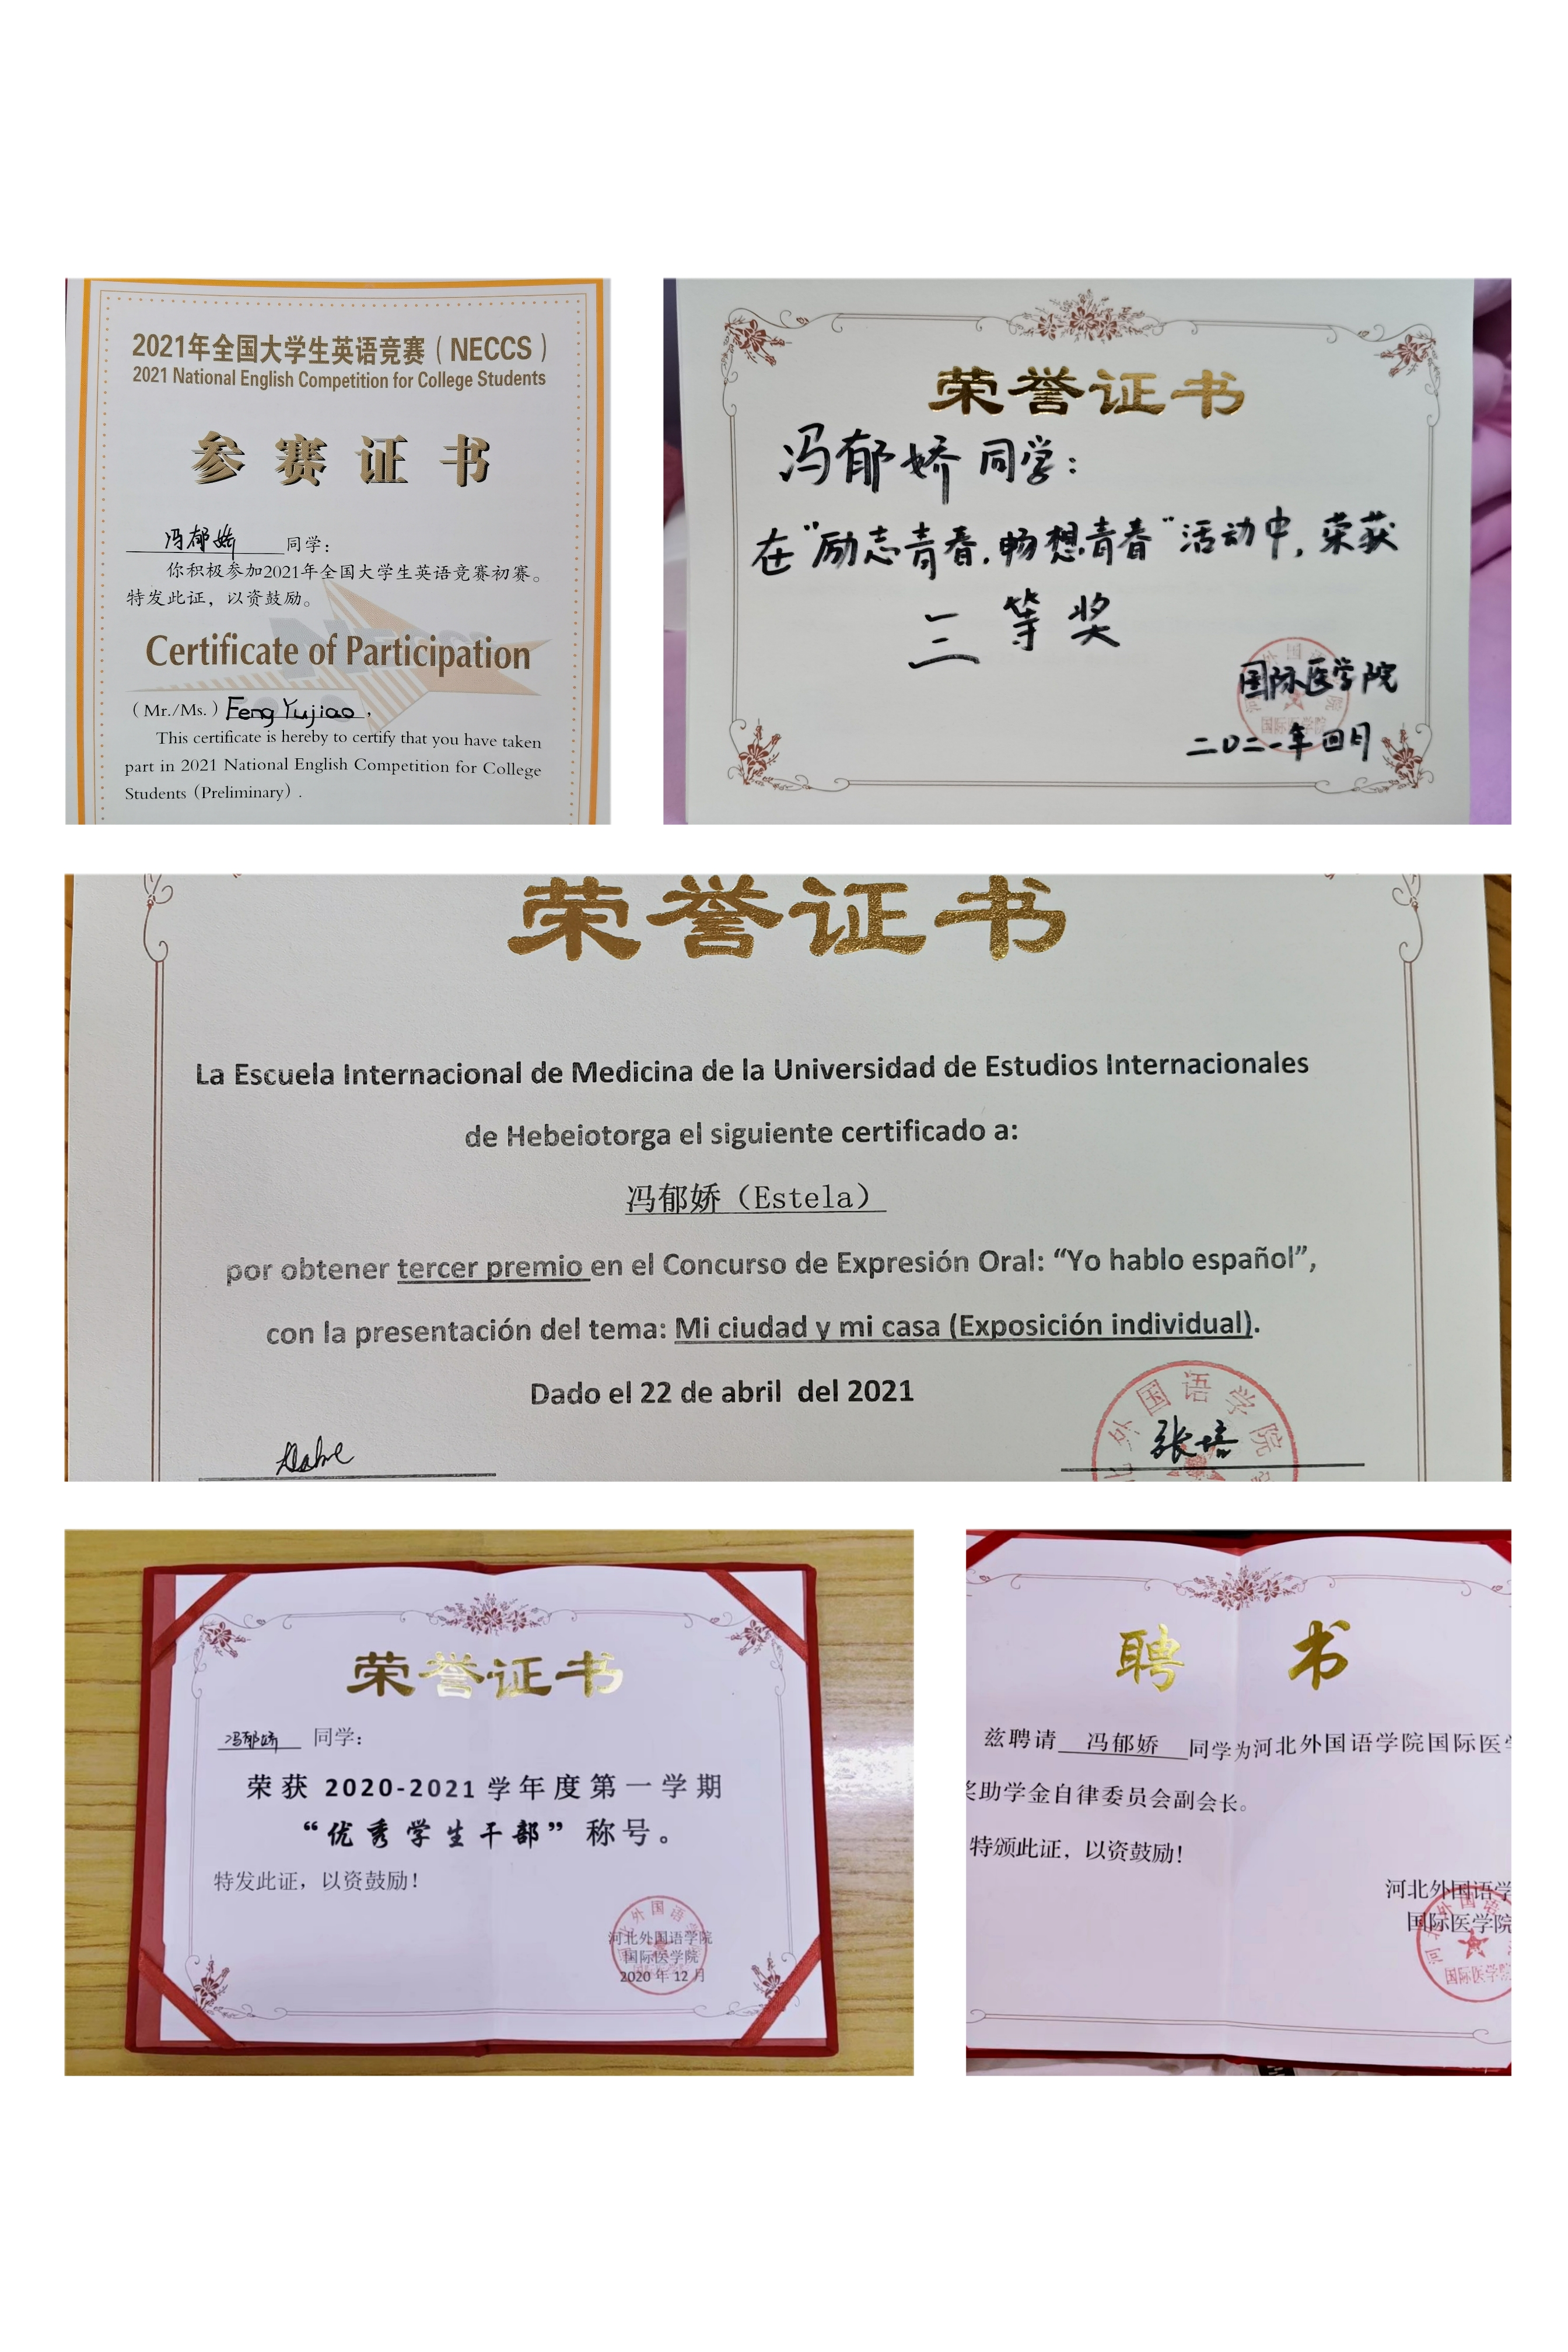 2021年全国大学生英语竞赛（NECCS）
2021 National English Competition for College Students
参赛证书
冯郁娇 同学：
你积极参加2021年全国大学生英语竞赛初赛。
特发此证，以资鼓励。
Certificate of Participation
（Mr./Ms.）Feng Yujiao，
This certificate is hereby to certify that you have taken
part in 2021 National English Competition for College
Students（Preliminary）.
荣誉证书
冯郁娇同学：
在"励志青春，畅想青春"活动中，荣获
三等奖
国际医学院
二0二一年四月
荣誉证书
La Escuela Internacional de Medicina de la Universidad de Estudios Internacionales
de Hebeiotorga el siguiente certificado a:
冯郁娇（Estela）
por obtener tercer premio en el Concurso de Expresión Oral: “Yo hablo español”,
con la presentación del tema: Mi ciudad y mi casa (Exposición individual).
Dado el 22 de abril del 2021
外国语学院
张培
荣誉证书
冯郁娇 同学：
荣获 2020-2021 学年度第一学期
“优秀学生干部”称号。
特发此证，以资鼓励！
河北外国语学院
国际医学院
2020 年 12 月
聘书
兹聘请 冯郁娇 同学为河北外国语学院国际医
助学金自律委员会副会长。
特颁此证，以资鼓励！
河北外国语学
国际医学院
国际医学院